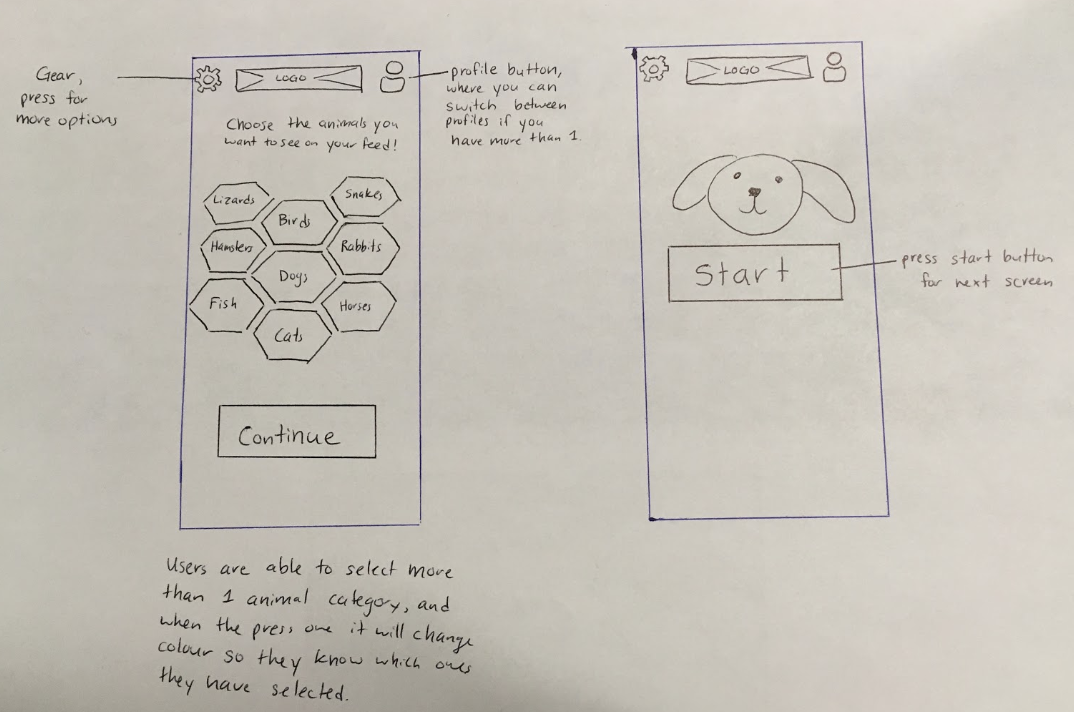 Gear,
press for
more options
LOGO
profile button,
where you can
switch between
profiles if you
have more than 1.
Choose the animals you
want to see on your feed!
Lizards
Snakes
Birds
Hamsters
Rabbits
Dogs
Fish
Horses
Cats
Continue
Users are able to select more
than 1 animal category, and
when the press one it will change
colour so they know which ones
they have selected.
LOGO
Start
press start button
for next screen